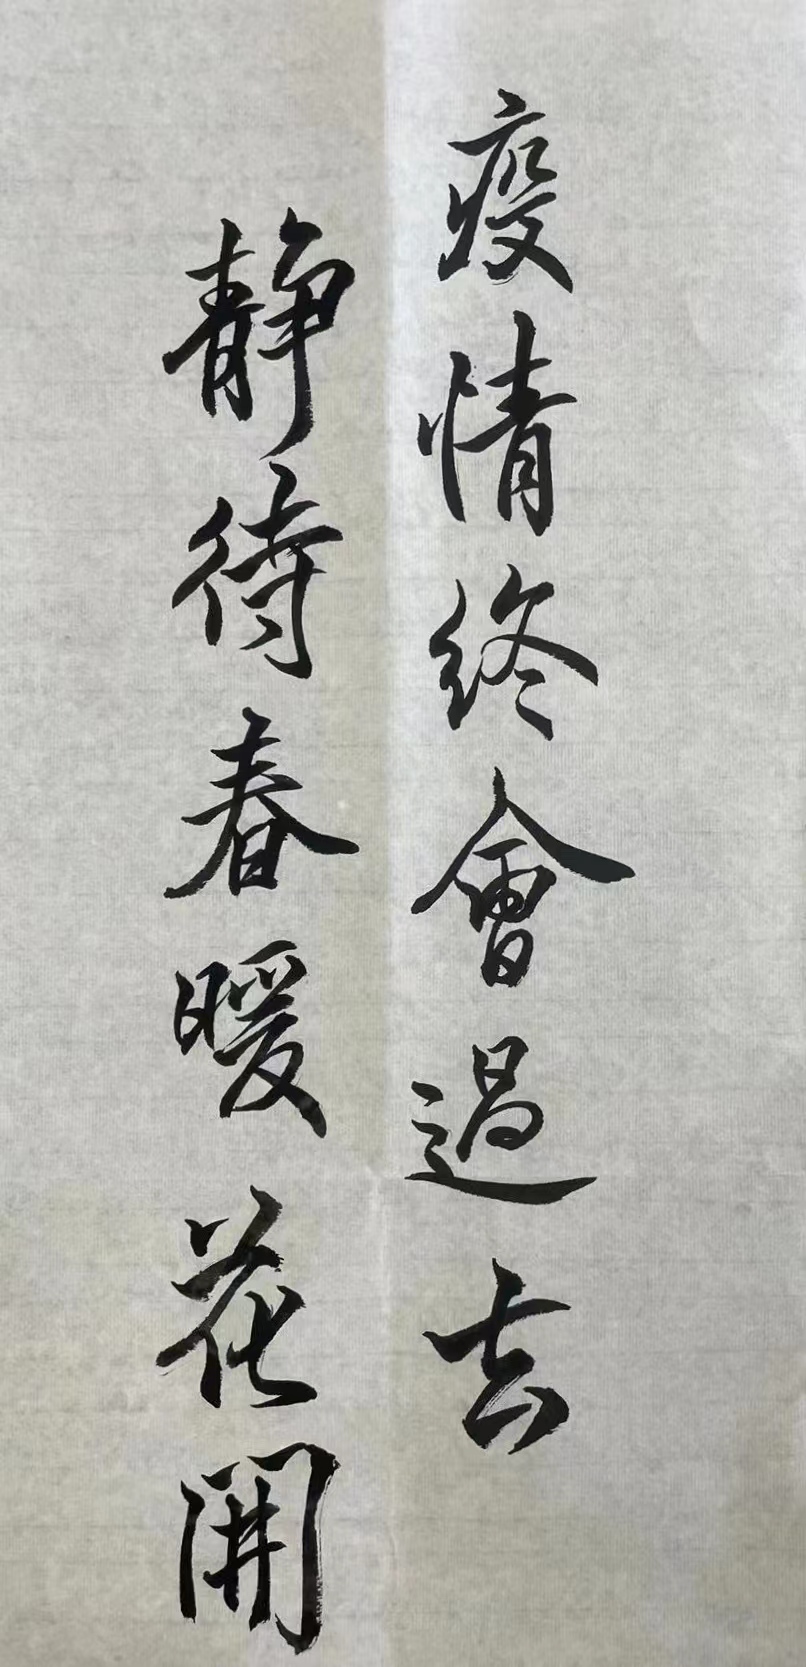 疫情终會過去
静待春暖花開